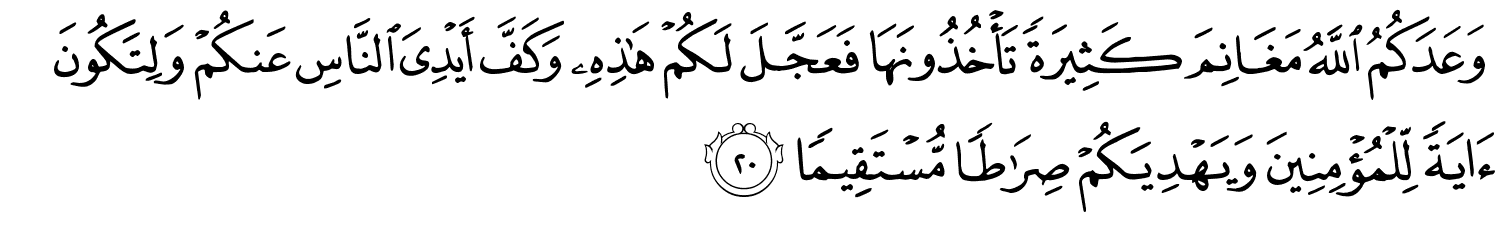 وَعَدَكُمُ ٱللَّهُ مَغَانِمَ كَثِيرَةً تَأْخُذُونَهَا فَعَجَّلَ لَكُمْ هَٰذِهِۦ وَكَفَّ أَيْدِىَ ٱلنَّاسِ عَنكُمْ وَلِتَكُونَ
ءَايَةً لِّلْمُؤْمِنِينَ وَيَهْدِيَكُمْ صِرَٰطًا مُّسْتَقِيمًا ٢٠